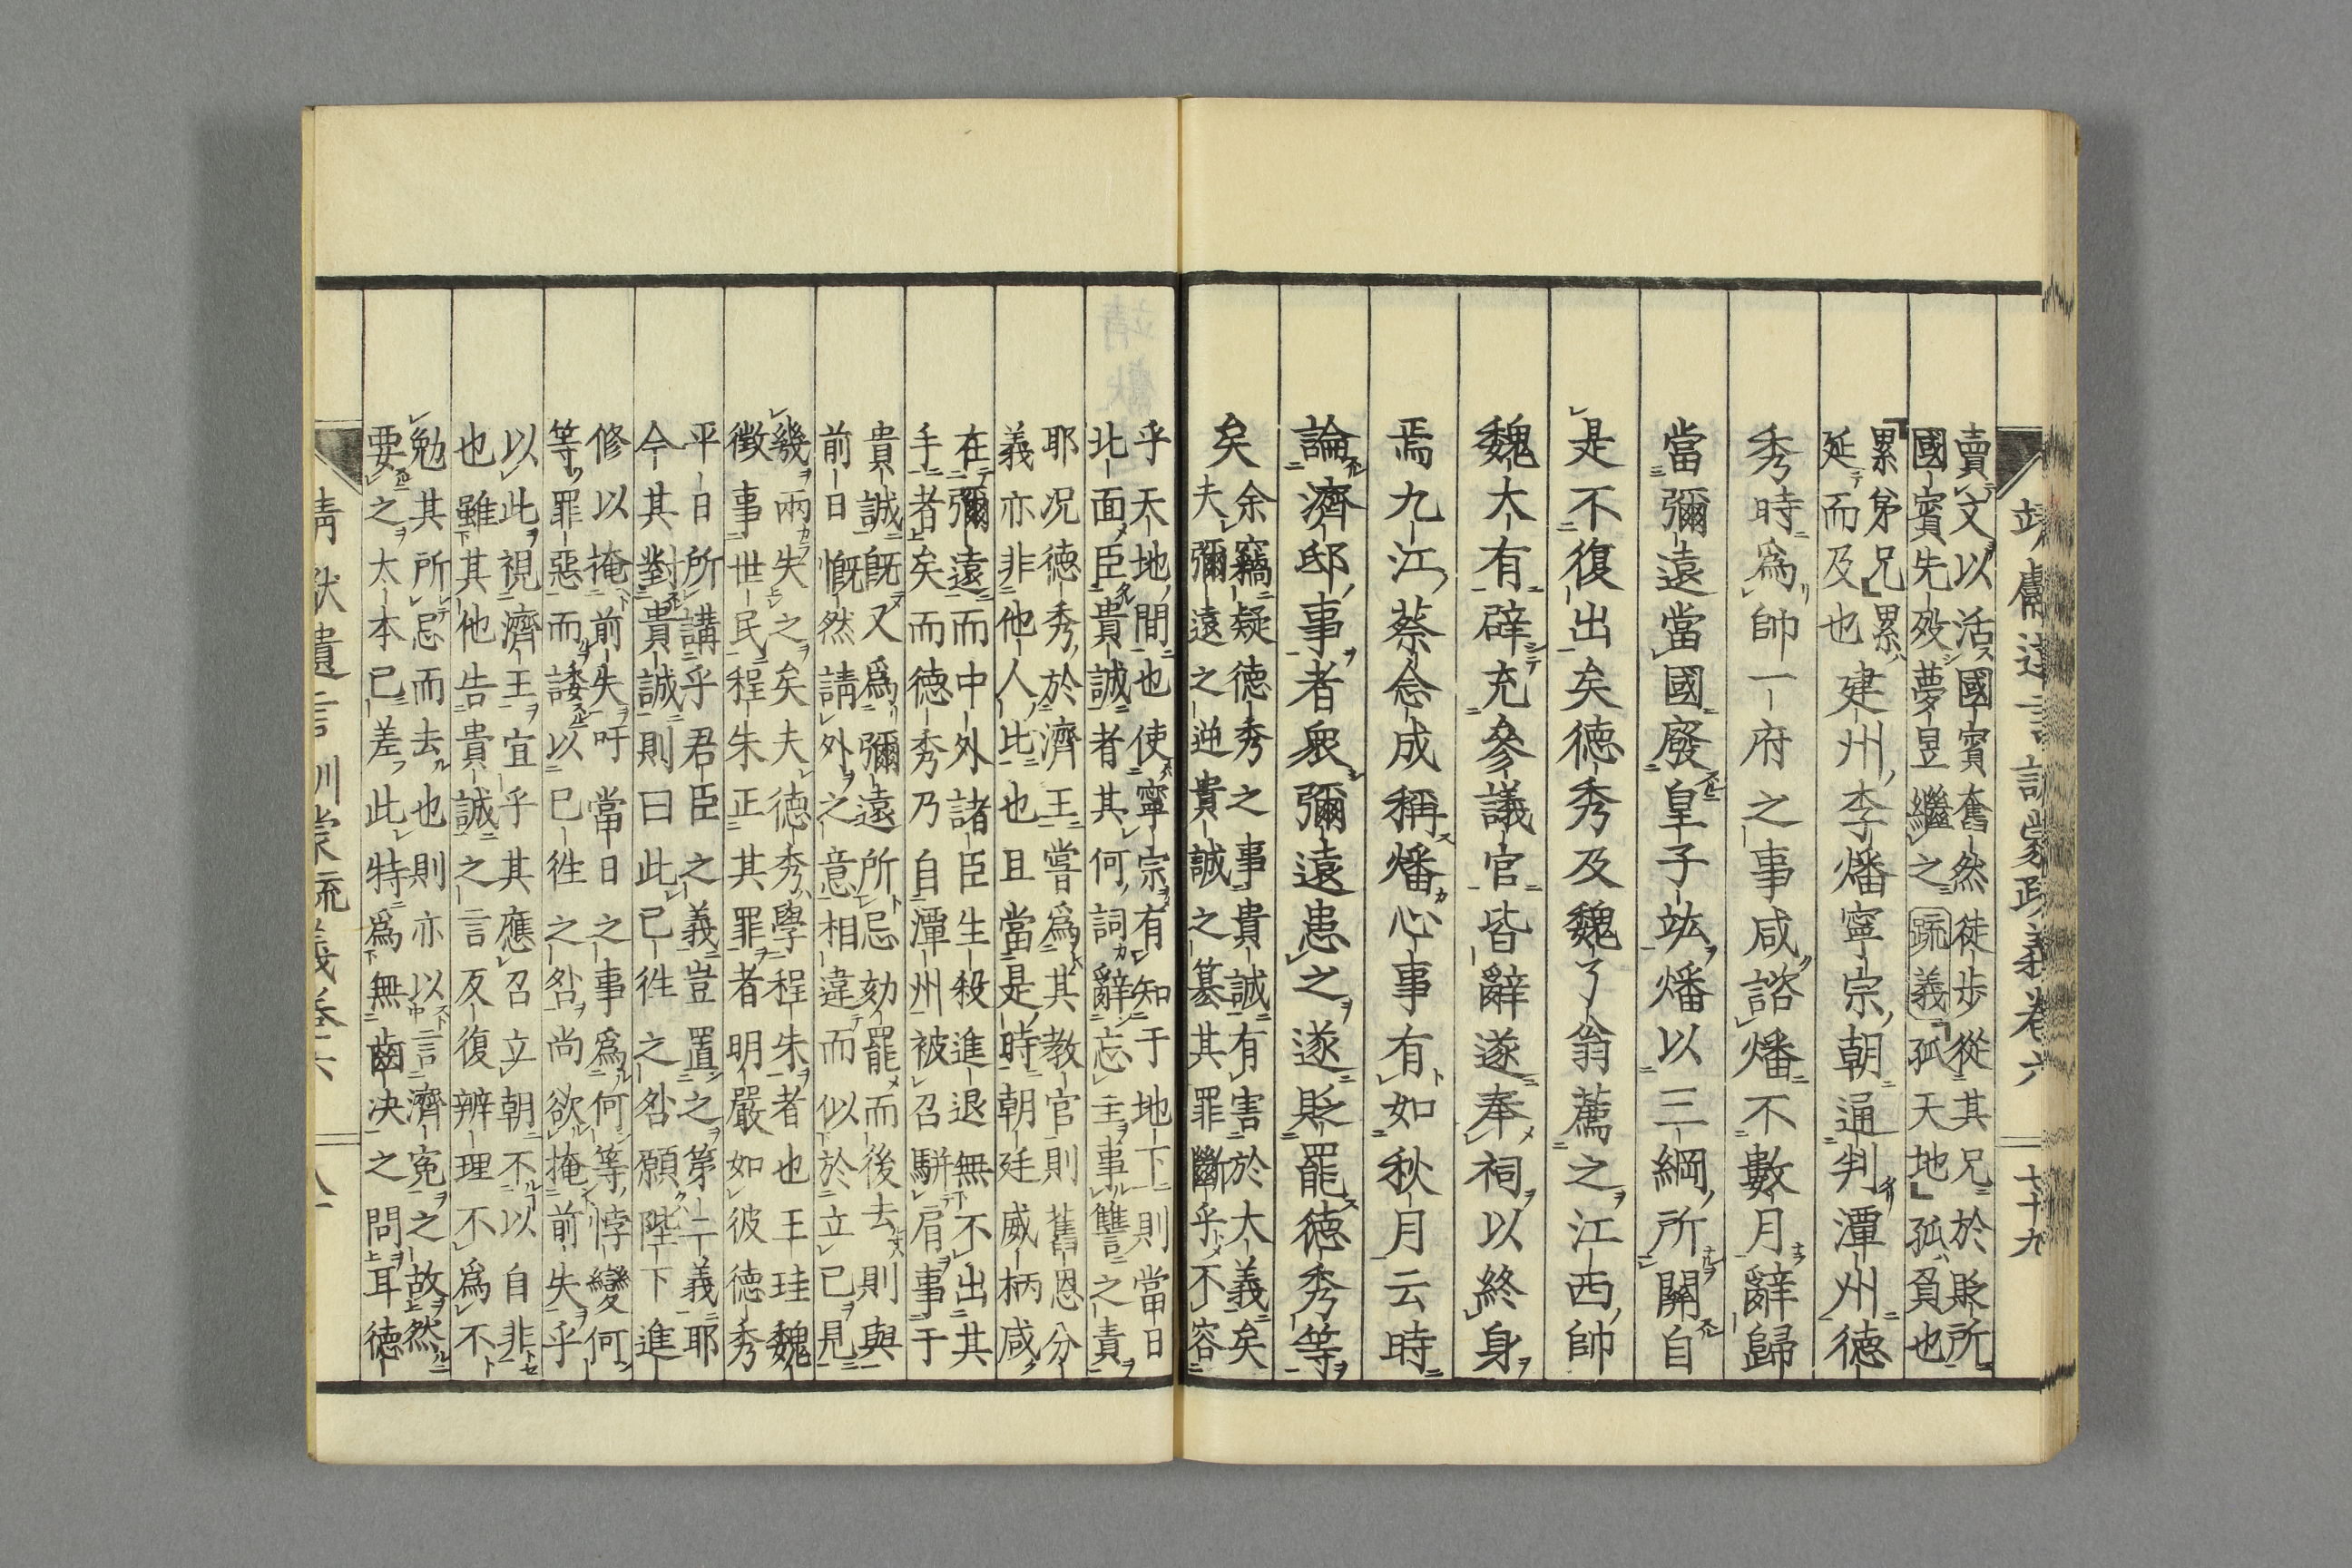 靖獻遺言訓蒙疏義卷六 七十九
賣文以活國賓奮然徒步從其兄於貶所
國賓先歿夢昱繼之疏義孤天地孤負也
累弟兄累
延而及也
建州李燔寧宗朝通判潭州德
秀時爲帥一府之事咸諮燔不數月辭歸
當彌遠當國廢皇子竑燔以三綱所關自
是不復出矣德秀及魏了翁薦之江西帥
魏大有辟充參議官皆辭遂奉祠以終身
焉九江蔡念成稱燔心事有如秋月云時
論濟邸事者衆彌遠患之遂貶罷德秀等
矣
余竊疑德秀之事貴誠有害於大義矣
夫彌遠之逆貴誠之簒其罪斷乎不容
乎天地間也使寧宗有知于地下則當日
北面臣貴誠者其何詞辭忘主事讐之責
耶况德秀於濟王嘗爲其教官則舊恩分
義亦非他人比也且當是時朝廷威柄咸
在彌遠而中外諸臣生殺進退無不出其
手者矣而德秀乃自潭州被召駢肩事于
貴誠既又爲彌遠所忌劾罷而後去則與
前日慨然請外之意相違而似於立已見
幾兩失之矣夫德秀學程朱者也王珪魏
徵事世民程朱正其罪者明嚴如彼德秀
平日所講乎君臣之義豈置之第二義耶
今其對貴誠則曰此已徃之咎願陛下進
修以掩前失吁當日之事爲何等悖變何
等罪惡而諉以已徃之咎尚欲掩前失乎
以此視濟王宜乎其應召立朝不以自非
也雖其他告貴誠之言反復辨理不爲不
勉其所忌而去也則亦以言濟寃之故然
要之大本已差此特爲無齒决之問耳德